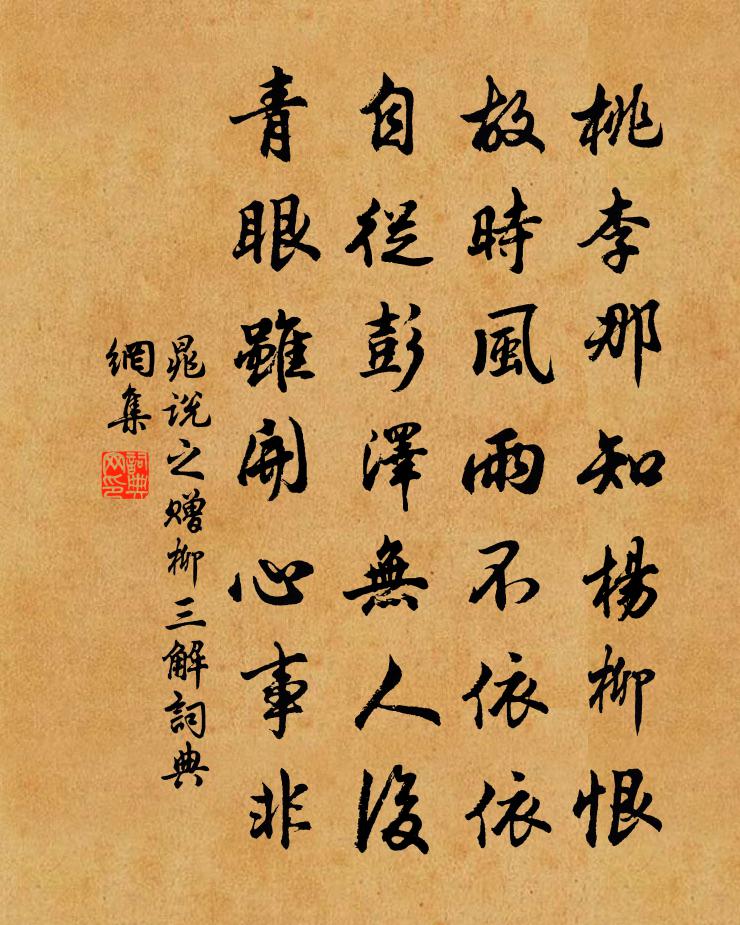 桃李那知楊柳恨
故時風雨不依依
自從彭澤無人後
青眼雖開心事非
晁説之赠柳三解詞典
網集
詞典
网印